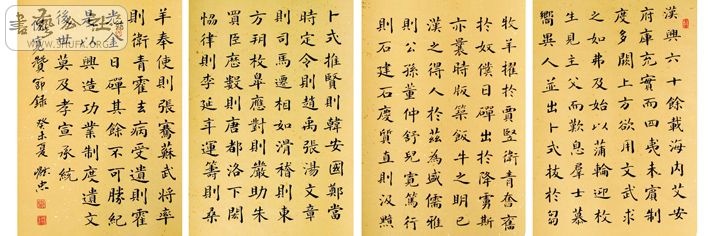 漢興六十餘載海内乂安
府庫充實而四夷未賓制
度多闕上方欲用文武求
之如弗及始以蒲輪迎枚
生見主父而歎息群士慕
嚮異人並出卜式拔於芻
牧羊擢於賈豎衛青奮
於奴僕日磾出於降虜斯
亦曩時版築飯牛之朋已
漢之得人於茲為盛儒雅
則公孫董仲舒兒寬篤行
則石建石慶質直則汲黯
卜式推賢則韓安國鄭當
時定令則趙禹張湯文章
則司馬遷相如滑稽則東
方朔枚皋應對則嚴助朱
買臣歷數則唐都洛下閎
協律則李延年運籌則桑
羊奉使則張騫蘇武將率
則衛青霍去病受遺則霍
光金日磾其餘不可勝紀
是以興造功業制度遺文
後世莫及孝宣承統
倪寬贊節錄 癸未夏 忠
WWW.SHUFA.ORG